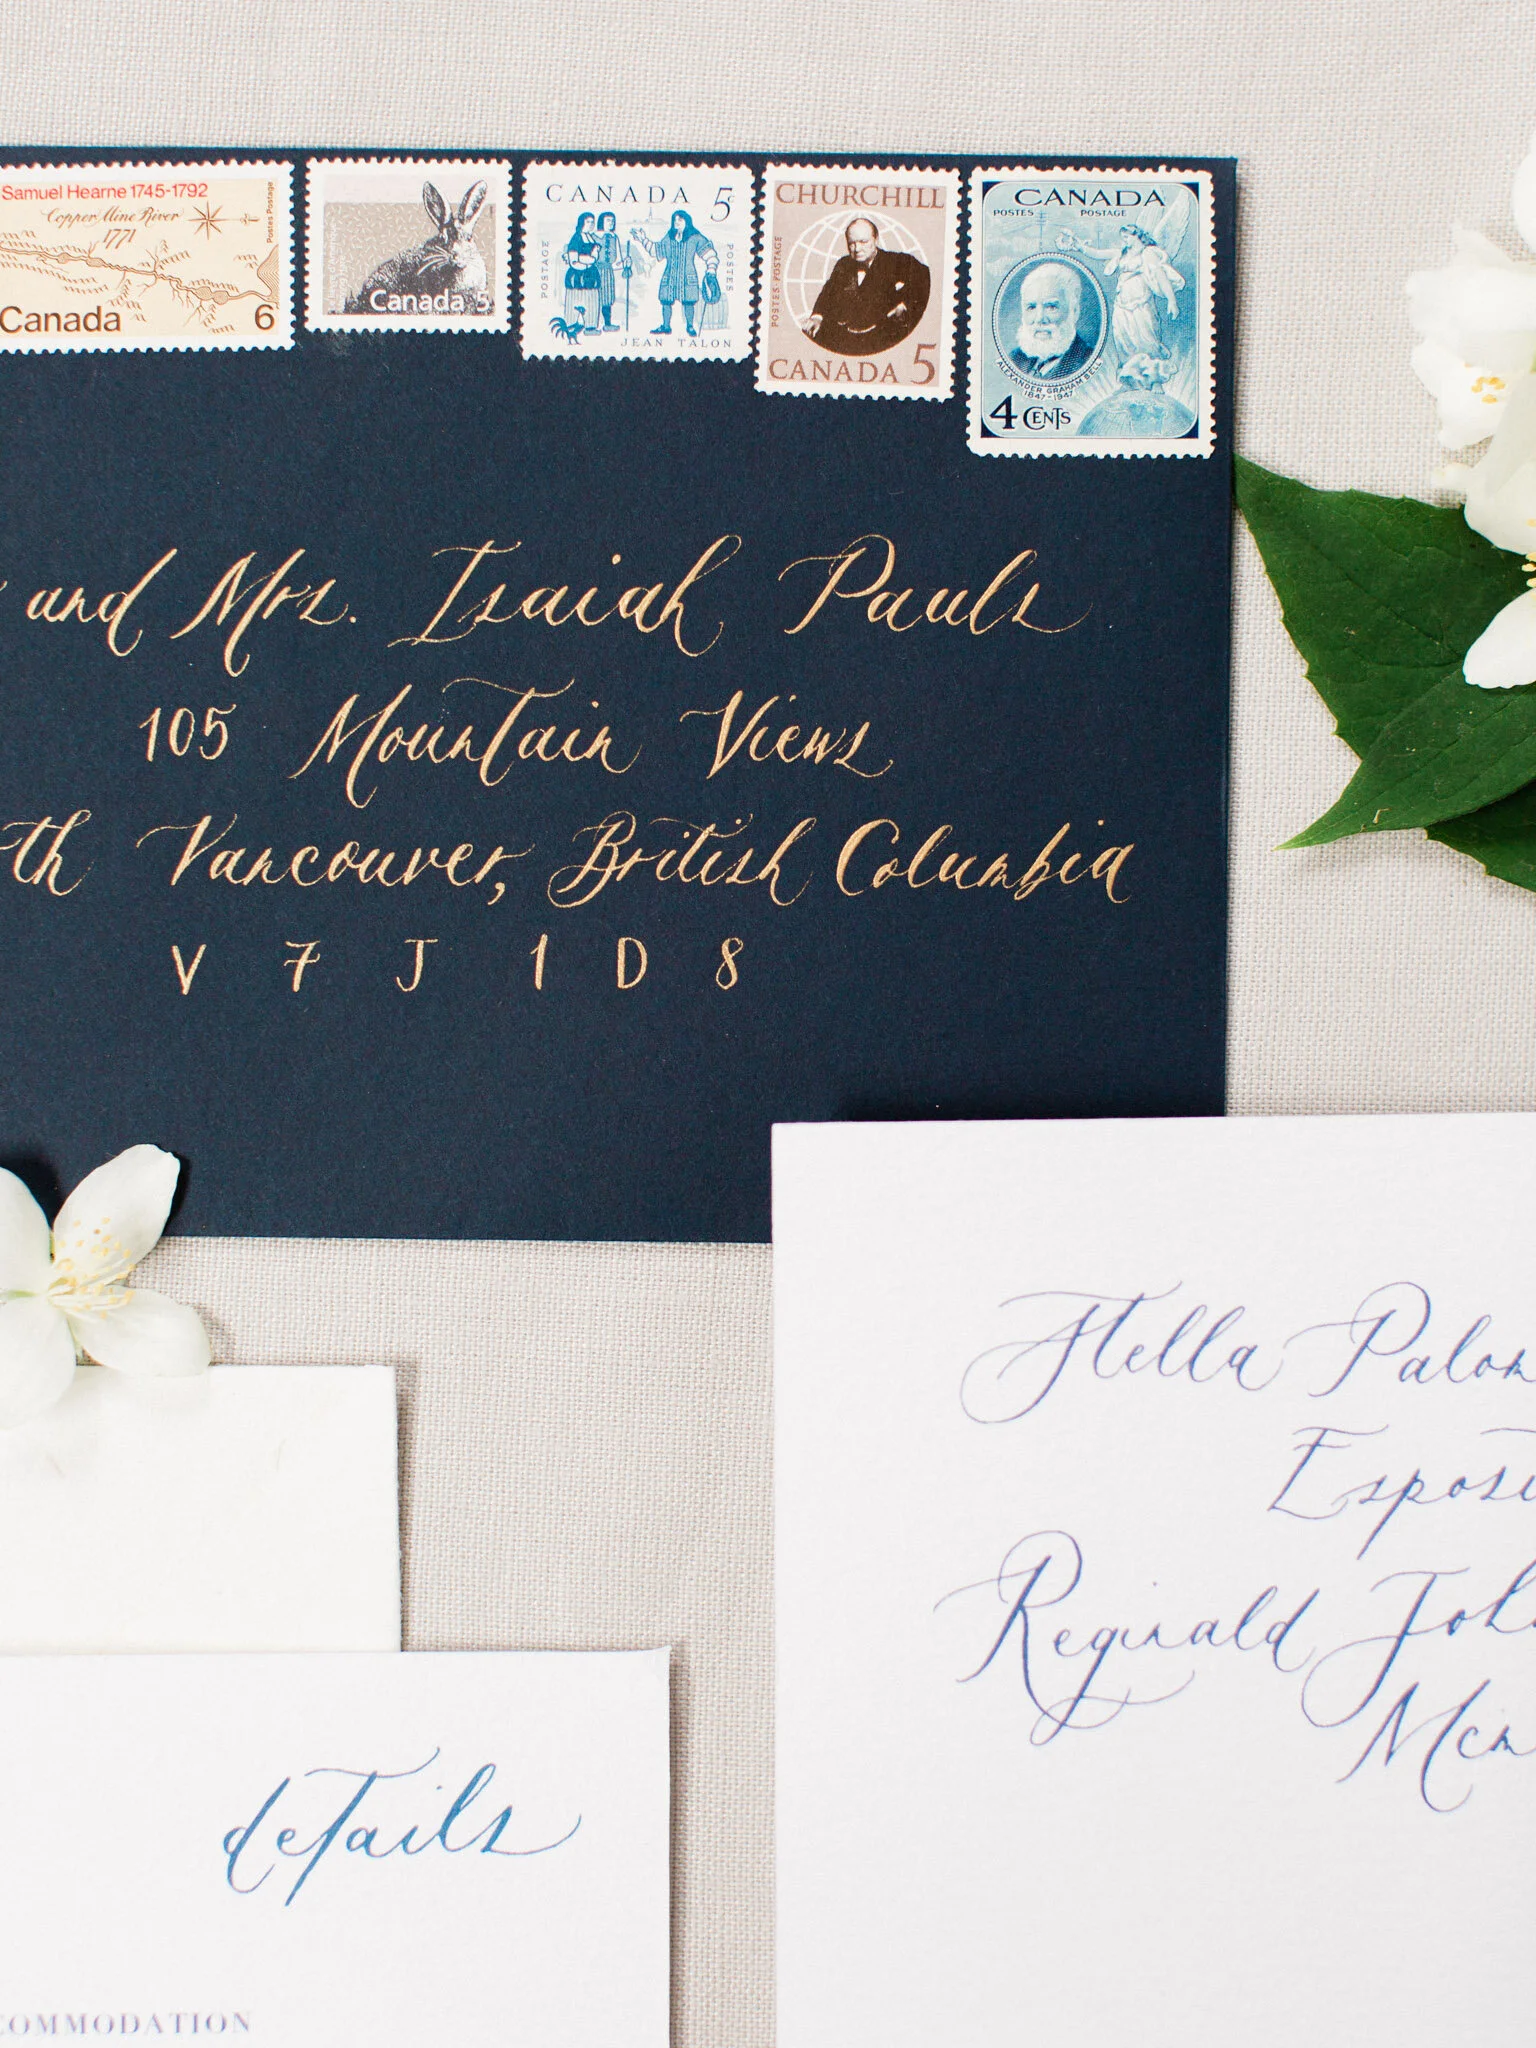 Samuel Hearne 1745-1792
Copper Mine River
1771
Postes Postage
Canada 6
Canada 5
CANADA 5¢
POSTAGE
POSTES
JEAN TALON
CHURCHILL
POSTES POSTAGE
CANADA 5
CANADA
POSTES POSTAGE
ALEXANDER GRAHAM BELL
1847-1947
4 CENTS
and Mrs. Isaiah Pauls
105 Mountain Views
th Vancouver, British Columbia
V 7 J 1 D 8
Stella Palom
Esposi
Reginald Joh
Mcm
details
COMMODATION